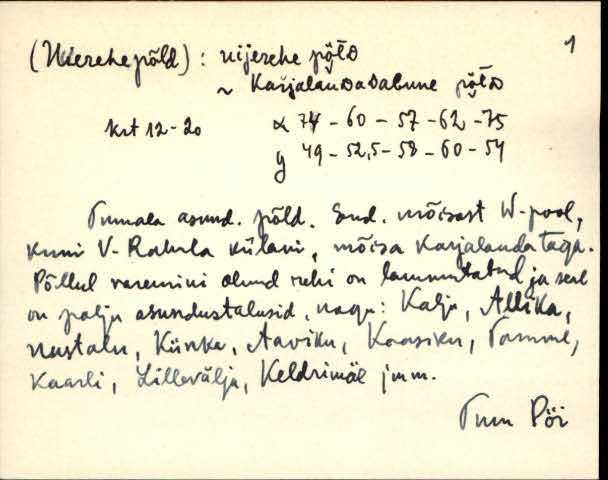 1
(Uierehepõld) : uijerehe põ̬lᴅ
~ Karjalauᴅaᴅabune põ̬lᴅ
krt 12-20 x 74 - 60 - 57 - 62 - 75
y 49 - 52,5 - 58 - 60 - 54
Tumala asund. põld. End. mõisast W-pool,
kuni V-Rahula külani, mõisa karjalauda taga.
Põllul varemini olnud rehi on lammutatud ja seal
on palju asundustalusid, nagu: Kalju, Allika,
Uustalu, Künka, Aaviku, Kaasiku, Tamme,
Kaarli, Lillevälja, Keldrimäe jmm.
Tum Pöi